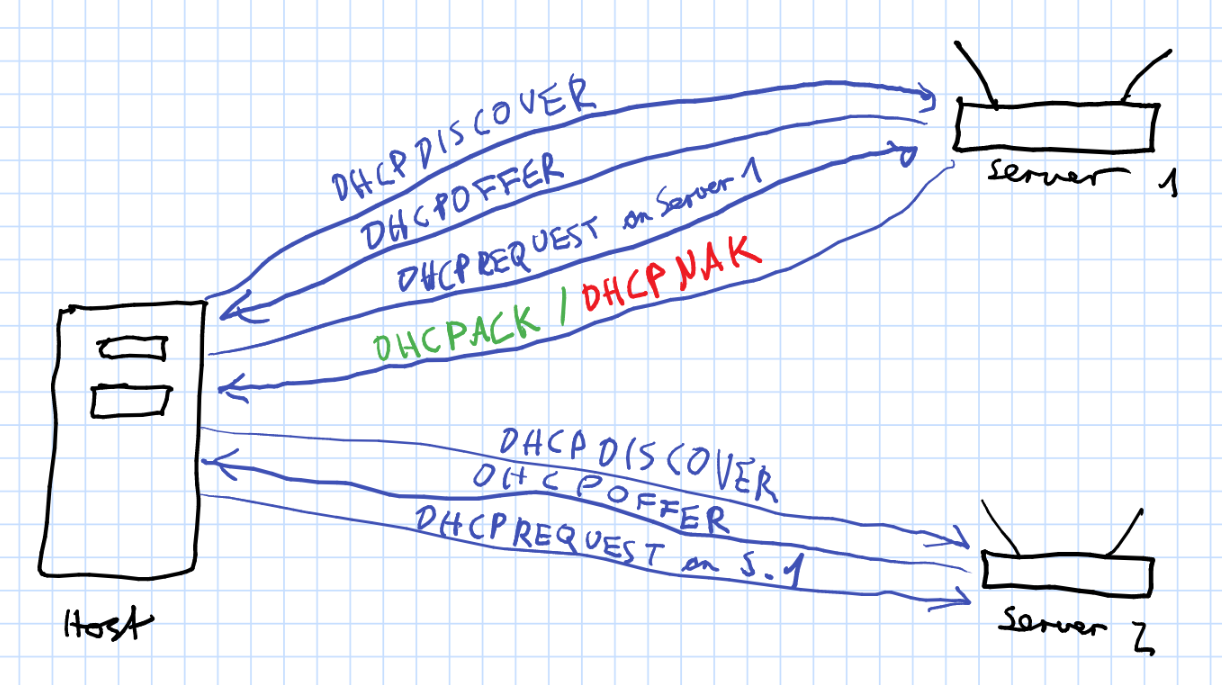 DHCPDISCOVER
DHCPOFFER
DHCPREQUEST an Server 1
DHCPACK / DHCPNAK
Server 1
DHCPDISCOVER
DHCPOFFER
DHCPREQUEST an S.1
Host
Server 2